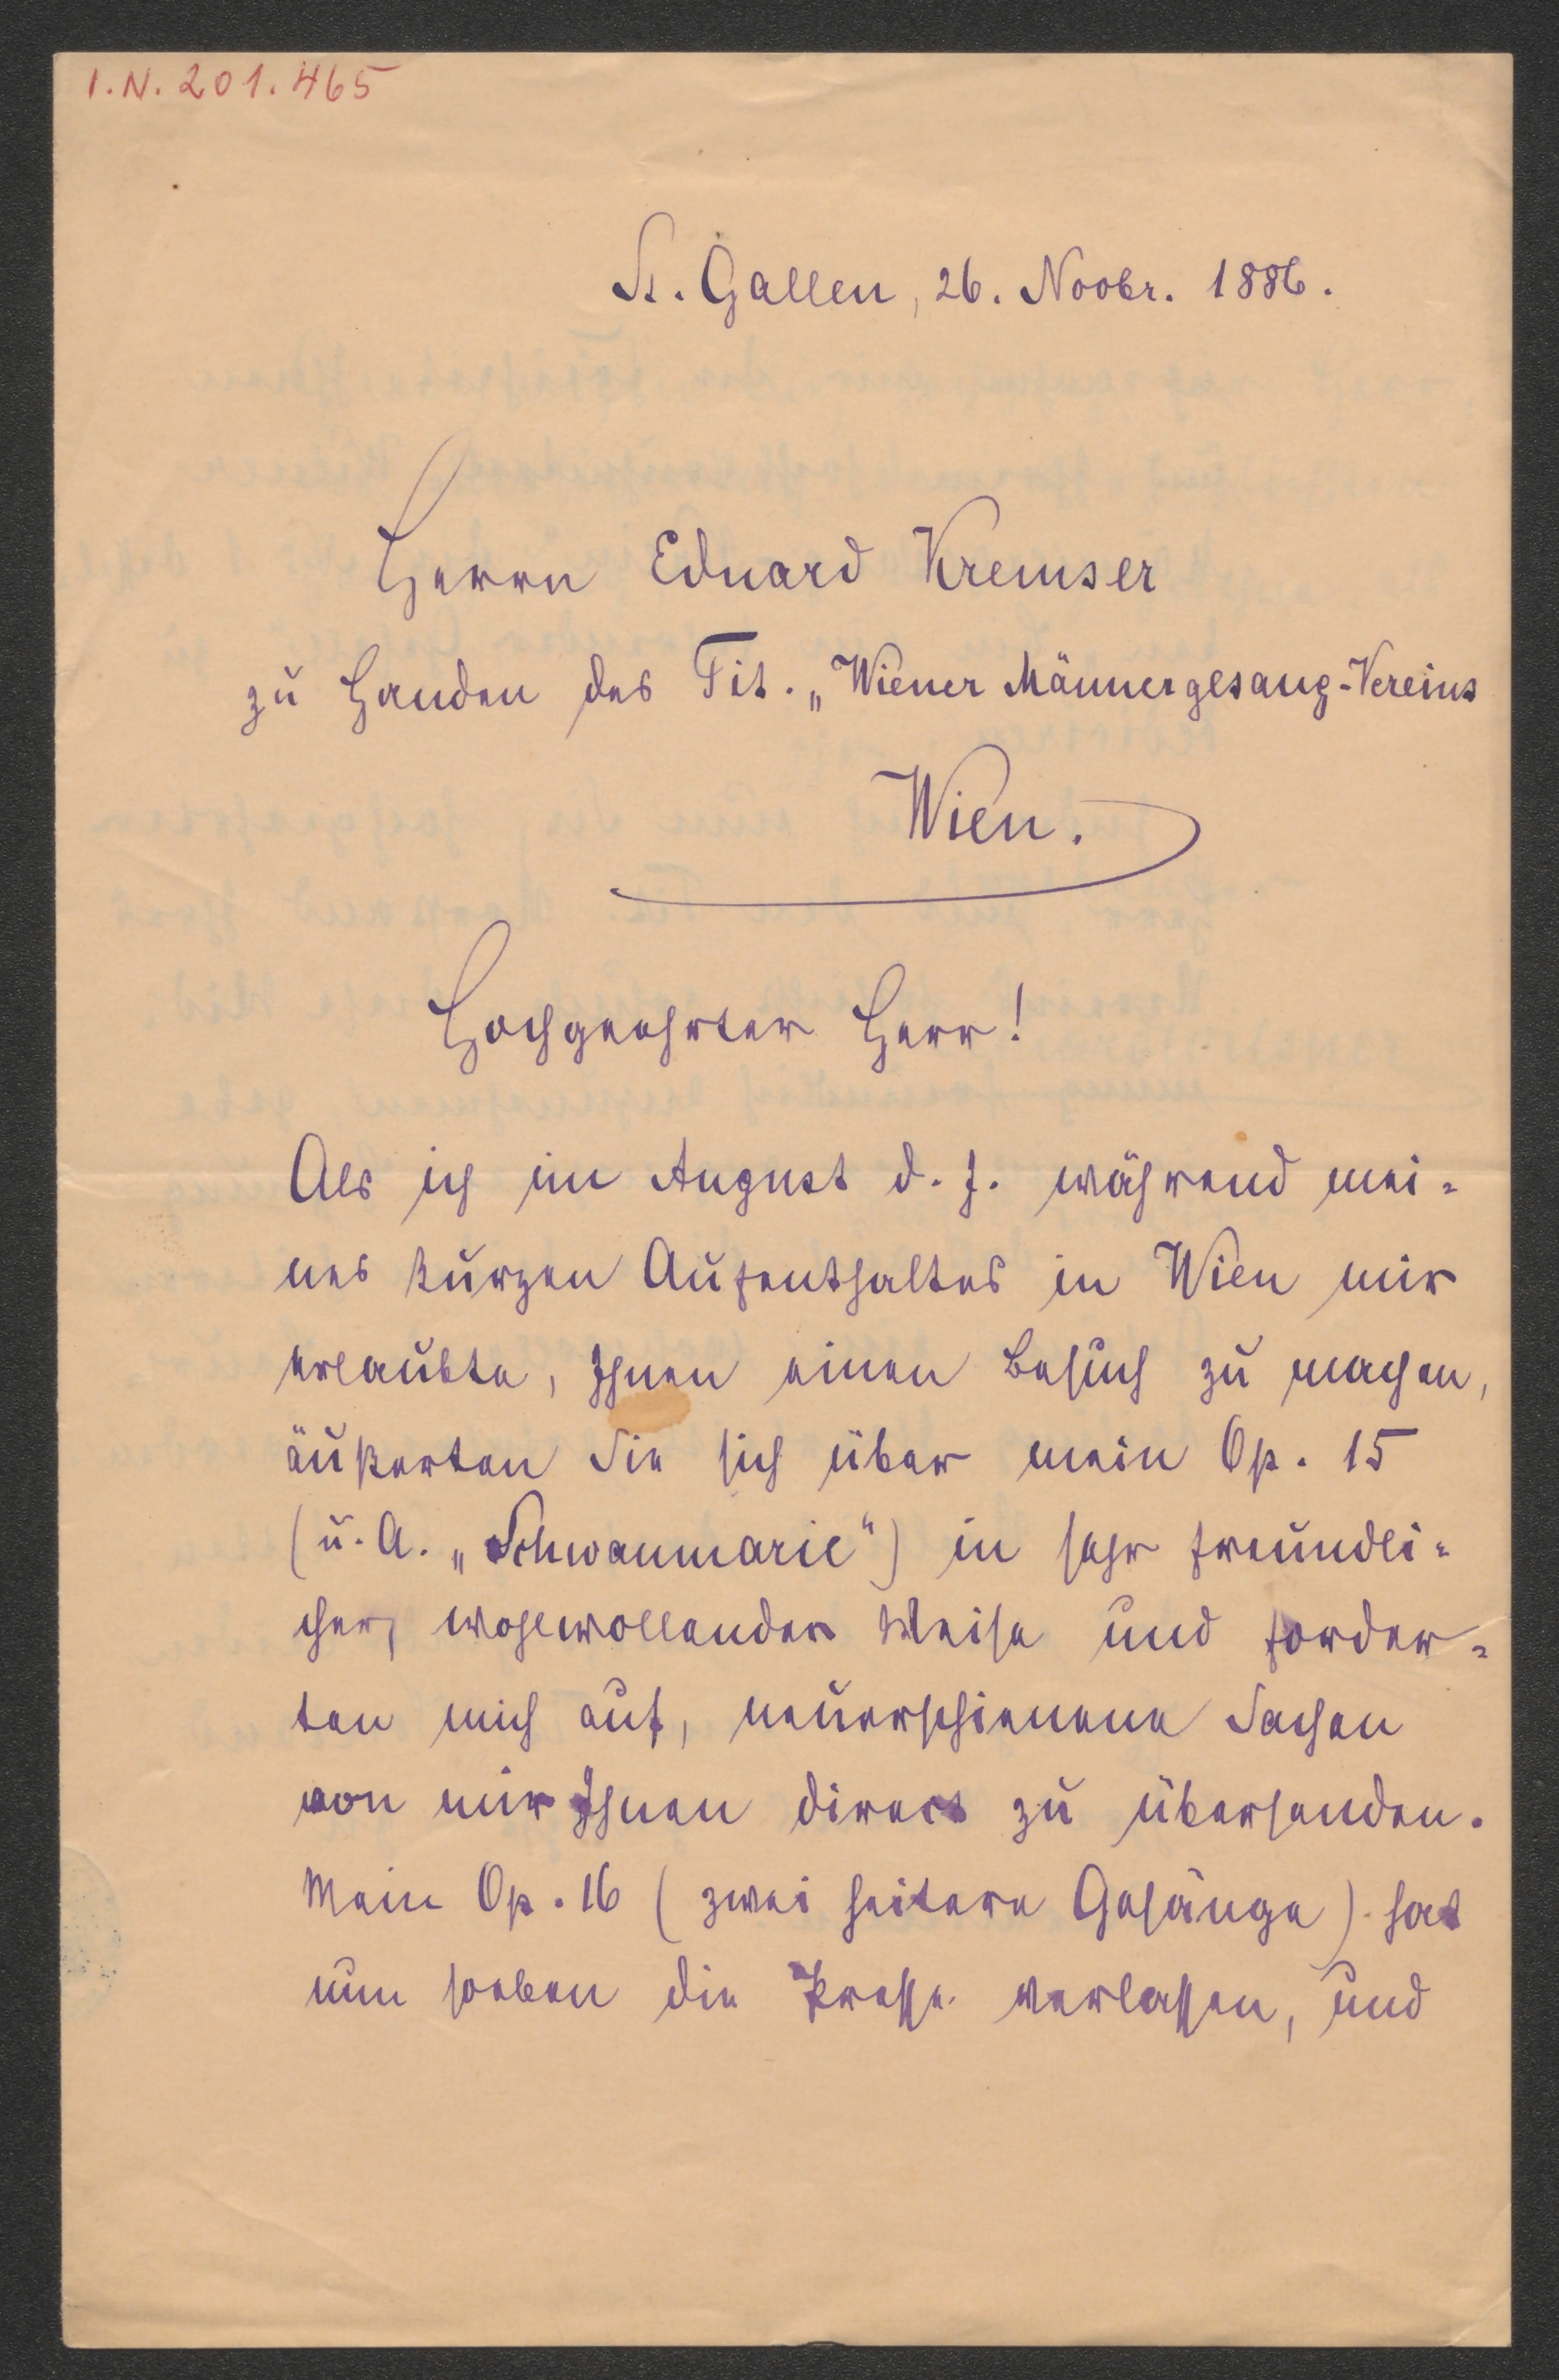 I.N. 201.465
St. Gallen, 26. Novbr. 1886.
Herrn Eduard Kremser
zu Handen des Tit. „Wiener Männergesang-Vereins
Wien.
Hochgeehrter Herr!
Als ich im August d. J. während mei-
nes kurzen Aufenthaltes in Wien mir
erlaubte, Ihnen einen Besuch zu machen,
äußerten Sie sich über mein Op. 15
(u. A. „Schwanmarie“) in sehr freundli-
cher, wohlwollender Weise und forder-
ten mich auf, neuerschienene Sachen
von mir Ihnen direct zu übersenden.
Mein Op. 16 (zwei heitere Gesänge) hat
nun soeben die Presse verlassen, und